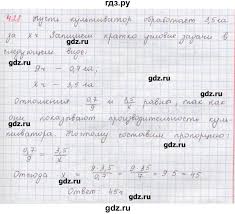 гдз.ру
428 Пусть культиватор обработает 3,5 га
за x ч. Запишем кратко условие задачи в
следующем виде:
9ч — 0,7 га,
xч — 3,5 га
Отношения 0,7/9 и 3,5/x равны, так как
они показывают производительность куль-
тиватора. Поэтому составим пропорцию:
0,7/9 = 3,5/x
Отсюда x = 9·3,5/0,7 = 9·35/7 = 9·5 = 45
Ответ: 45ч